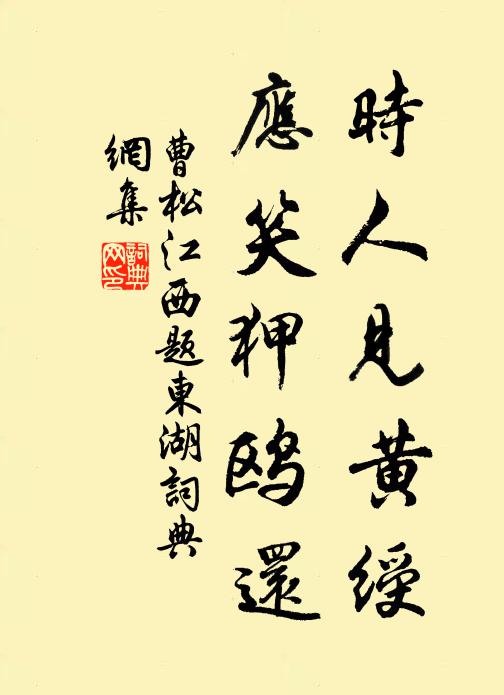 時人見黄綬
應笑狎鷗還
曹松江西題東湖詞典
網集
詞典
网印